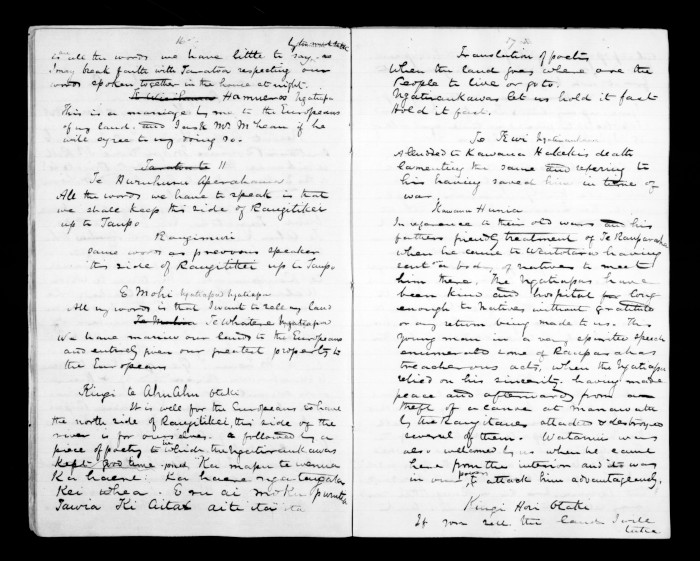 by the next table
is all the words we have little to say, as
I may break faith with Taratoa respecting our
words spoken together in the house at night.
Hamuera Ngatiapa
This is a marriage by me to the Europeans
of my land. and I ask Mr McLean if he
will agree to my doing so.
Taratoa te 11
Te Huruhuru Aperahama
All the words we have to speak is that
we shall keep this side of Rangitikei
up to Taupo
Rangimui
same words as previous speaker
this side of Rangitikei up to Taupo
E Mohi Ngatiapa Ngatiapa
All my words is that I want to sell my land
Te Whatene Ngatiapa
We have man our lands to the Europeans
and entirely given our greatest property to
the Europeans
Kingi te AhuAhu Otaki
It is well for the Europeans to have
the north side of Rangitikei, this side of the
river is for ourselves. & followed by a
piece of poetry to which the Ngatiraukawas
kept good time. Ka mapu te wenua
Ka haere. Ka haere nga tangata
Kei whea. E ru ai moku puritia
Tawia Ki Aitai aite itai ita
17
Translation of poetry
When the land goes where are the
People to live or go to.
Ngatiraukawas let us hold it fast
Hold it fast.
Te Kiwi Ngatiraukawa
Alluded to Kawana Hakekes death
lamenting the same and refering to
his having saved him in time of
war.
Kawana Hunia
In reference to their old wars and his
fathers friendly treatment of Te Rauparaha
when he came to Waitotara having
sent a body of natives to meet
him there. The Ngatiapas have
been kind and hospital for long
enough to Natives without gratitude
or any return being made to us. This
young man in a very spirited speech
enumerated some of Rauparahas
treacherous acts, when the Ngatiapa
relied on his sincerity. having made
peace and afterwards from a
theft of a canoe at Manawatu
by the Rangitanes attacked & destroyed
several of them. Watanui was
also welcomed by us when he came
here from the interior and it was
in our power to attack him advantageously.
Kingi Hori Otaki
If you sell the land I will